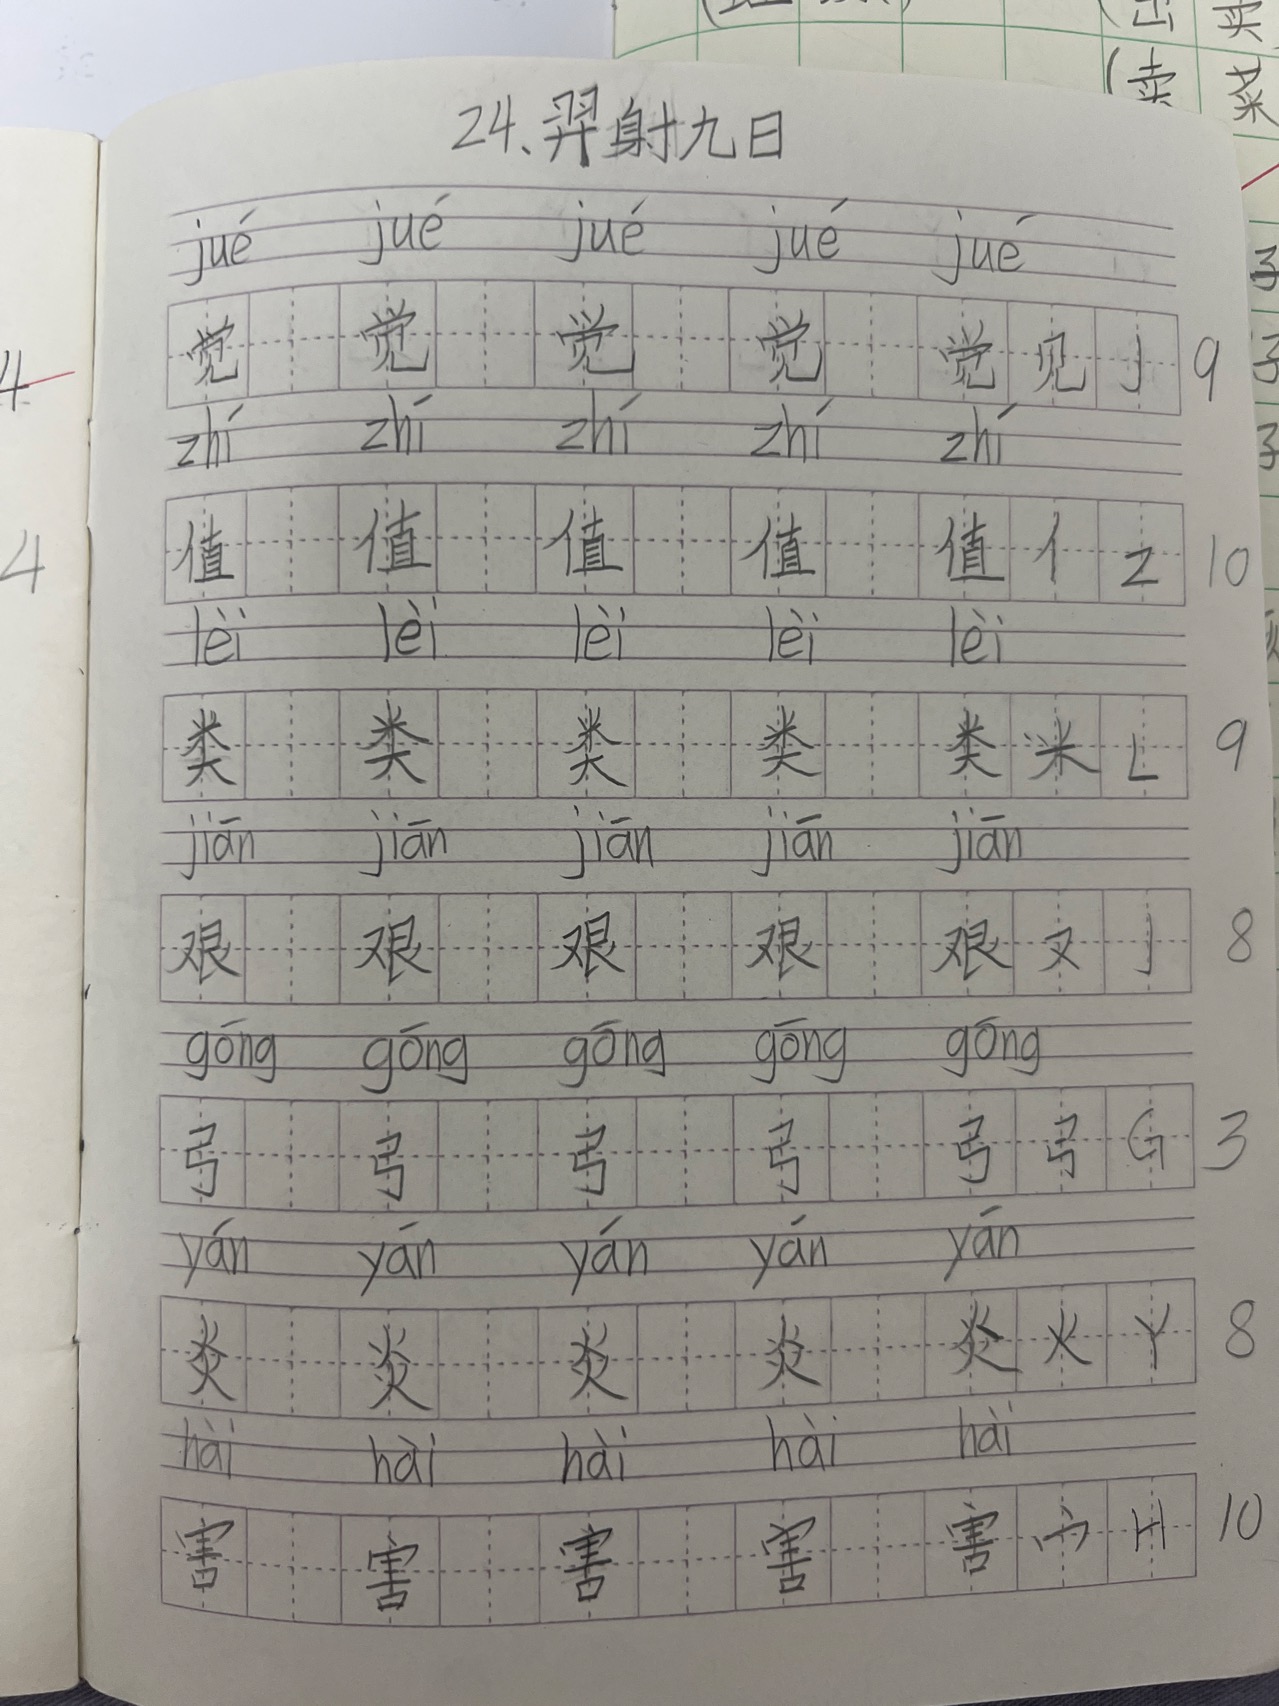 24、羿射九日
jué jué jué jué jué
觉 觉 觉 觉 觉 见 J 9
zhí zhí zhí zhí zhí
值 值 值 值 值 亻 Z 10
lèi lèi lèi lèi lèi
类 类 类 类 类 米 L 9
jiān jiān jiān jiān jiān
艰 艰 艰 艰 艰 又 J 8
gōng gōng gōng gōng gōng
弓 弓 弓 弓 弓 弓 G 3
yán yán yán yán yán
炎 炎 炎 炎 炎 火 Y 8
hài hài hài hài hài
害 害 害 害 害 宀 H 10
4
4
子
子
子